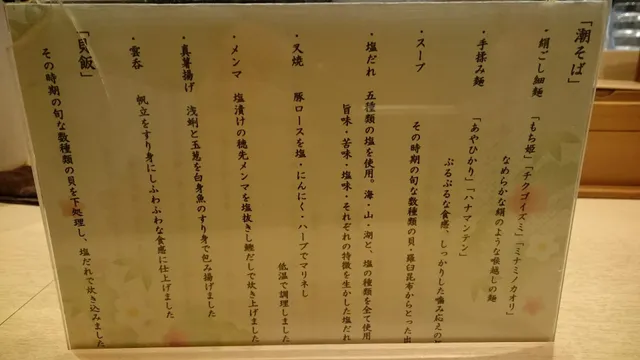 「潮そば」
・絹ごし細麺 「もち姫」「チクゴイズミ」「ミナミノカオリ」
なめらかな絹のような喉越しの麺
・手揉み麺 「あやひかり」「ハナマンテン」
ぷるぷるな食感、しっかりした噛み応えの
・スープ
その時期の旬な数種類の貝・羅臼昆布からとった出
・塩だれ 五種類の塩を使用。海・山・湖と、塩の種類を全て使用
旨味・苦味・塩味・それぞれの特徴を生かした塩だれ
・叉焼 豚ロースを塩・にんにく・ハーブでマリネし
低温で調理しました
・メンマ 塩漬けの穂先メンマを塩抜きし鰹だしで炊き上げました
・真薯揚げ 浅蜊と玉葱を白身魚のすり身で包み揚げました
・雲呑 帆立をすり身にしふわふわな食感に仕上げました
「貝飯」
その時期の旬な数種類の貝を下処理し、塩だれで炊き込みました